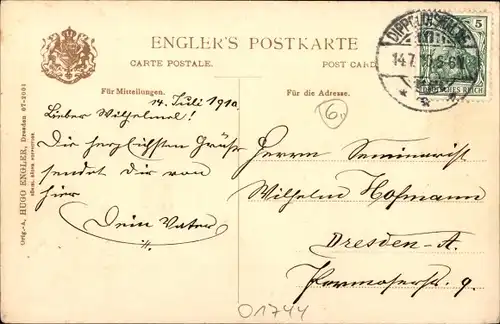 ENGLER'S POSTKARTE
CARTE POSTALE.
POST CARD.
Für Mitteilungen.
Für die Adresse.
14. Juli 1910.
Lieber Wilhelmel!
Die herzlichsten Grüße
sendet Dir von
hier
Dein Vater
Herrn Seminarist
Wilhelm Hofmann
Dresden-A.
9.
6
01744
DIPPOLDISWALDE
14.7.
5
DEUTSCHES REICH
HUGO ENGLER, Dresden